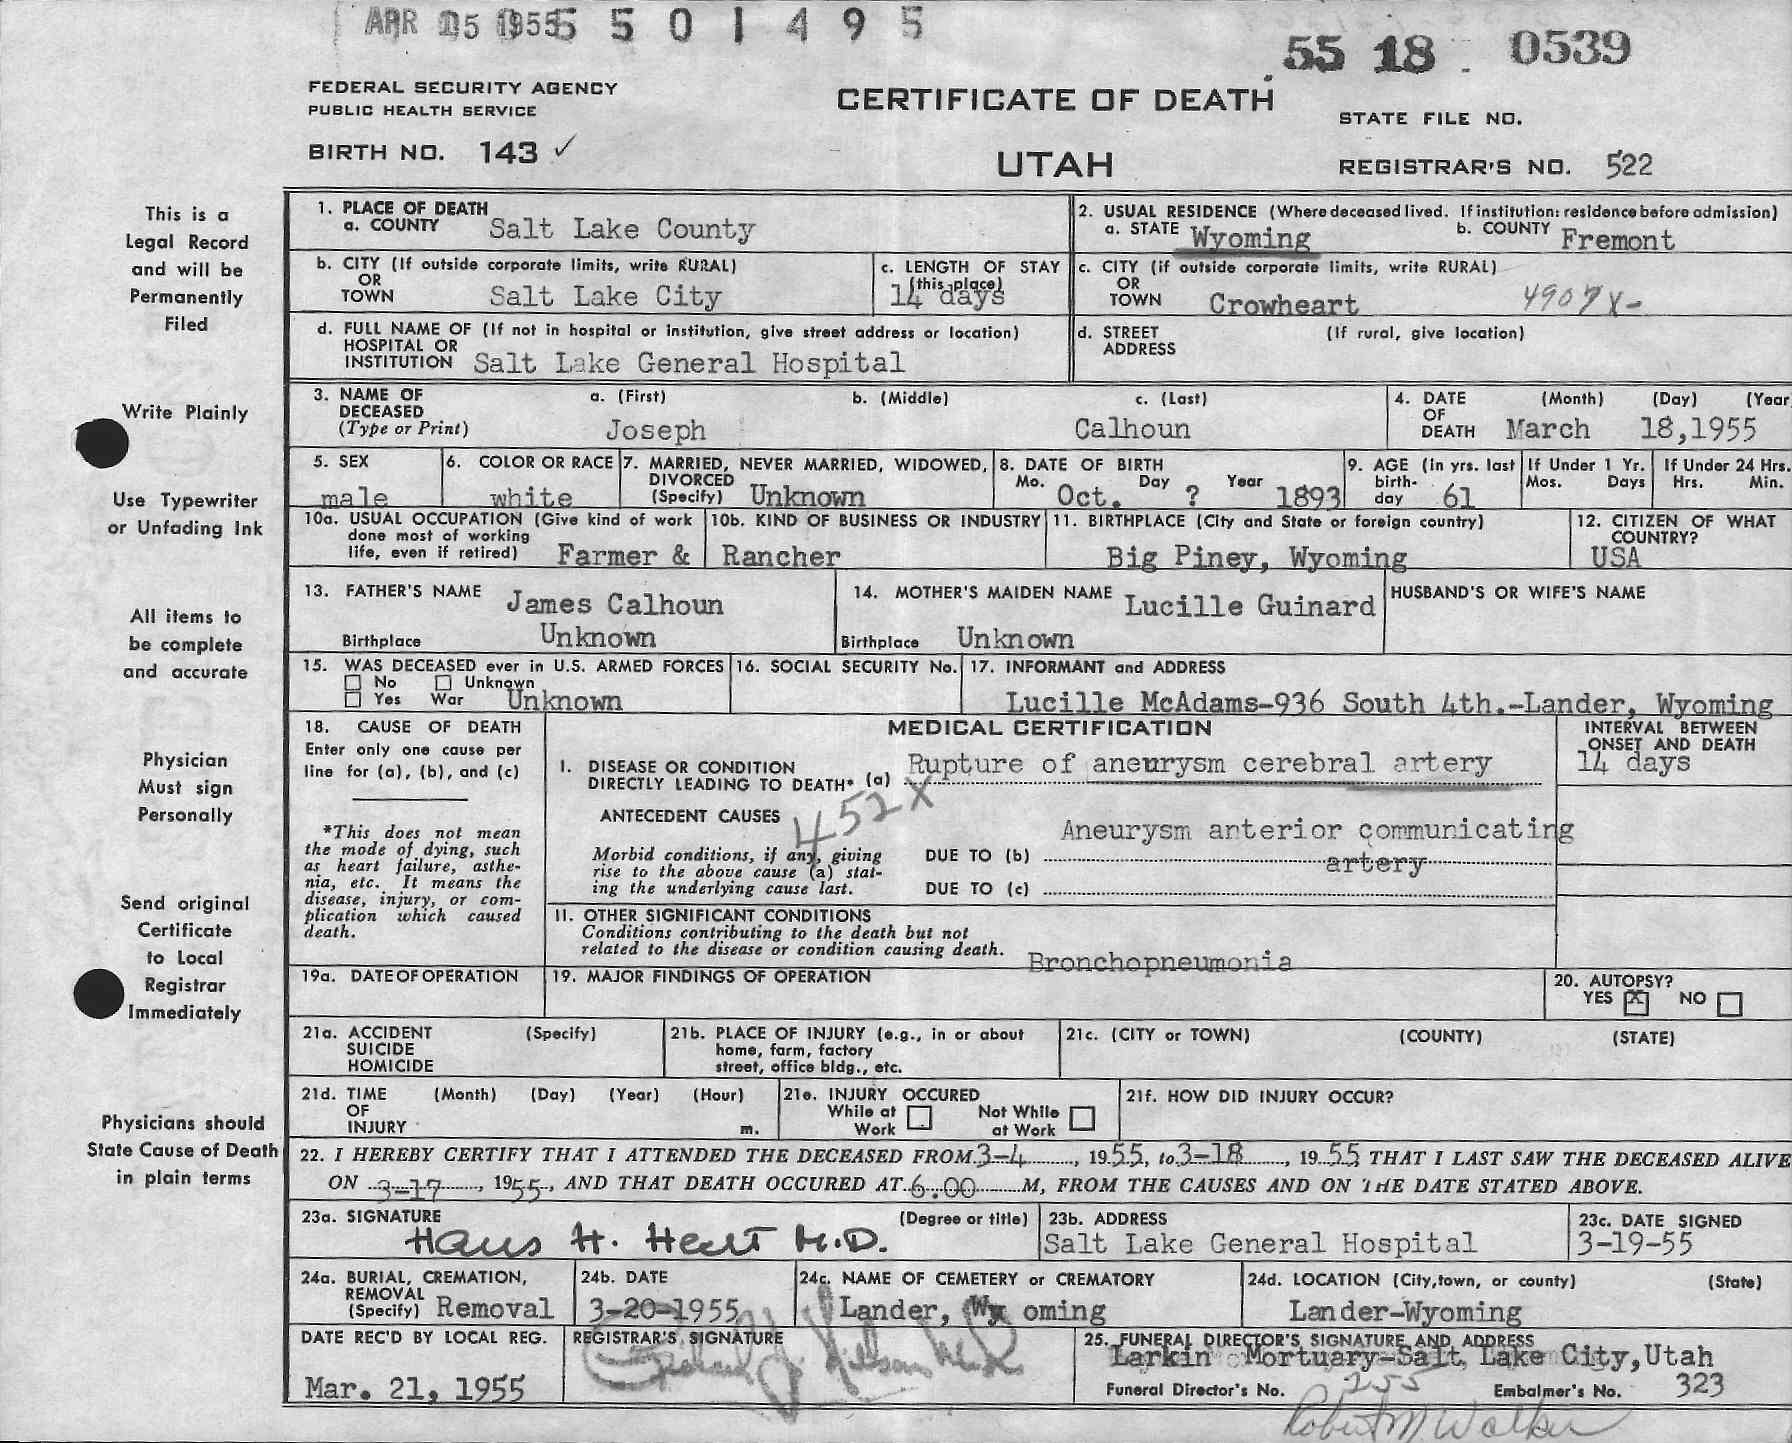 APR 15 1955 5 5 0 1 4 9 5
55 18 0539
FEDERAL SECURITY AGENCY
PUBLIC HEALTH SERVICE
CERTIFICATE OF DEATH
STATE FILE NO.
BIRTH NO. 143 ✓
UTAH
REGISTRAR'S NO. 522
This is a
Legal Record
and will be
Permanently
Filed
Write Plainly
Use Typewriter
or Unfading Ink
All items to
be complete
and accurate
Physician
Must sign
Personally
Send original
Certificate
to Local
Registrar
Immediately
Physicians should
State Cause of Death
in plain terms
1. PLACE OF DEATH
a. COUNTY Salt Lake County
2. USUAL RESIDENCE (Where deceased lived. If institution: residence before admission)
a. STATE Wyoming b. COUNTY Fremont
b. CITY (If outside corporate limits, write RURAL)
OR
TOWN Salt Lake City
c. LENGTH OF STAY
(this place)
14 days
c. CITY (if outside corporate limits, write RURAL)
OR
TOWN Crowheart 4907X-
d. FULL NAME OF (If not in hospital or institution, give street address or location)
HOSPITAL OR
INSTITUTION Salt Lake General Hospital
d. STREET (If rural, give location)
ADDRESS
3. NAME OF DECEASED
(Type or Print)
a. (First) b. (Middle) c. (Last)
Joseph Calhoun
4. DATE OF DEATH (Month) (Day) (Year
March 18,1955
5. SEX
male
6. COLOR OR RACE
white
7. MARRIED, NEVER MARRIED, WIDOWED,
DIVORCED
(Specify) Unknown
8. DATE OF BIRTH
Mo. Day Year
Oct. ? 1893
9. AGE (in yrs. last
birth-
day 61
If Under 1 Yr.
Mos. Days
If Under 24 Hrs.
Hrs. Min.
10a. USUAL OCCUPATION (Give kind of work
done most of working
life, even if retired) Farmer &
10b. KIND OF BUSINESS OR INDUSTRY
Rancher
11. BIRTHPLACE (City and State or foreign country)
Big Piney, Wyoming
12. CITIZEN OF WHAT
COUNTRY?
USA
13. FATHER'S NAME James Calhoun
Birthplace Unknown
14. MOTHER'S MAIDEN NAME Lucille Guinard
Birthplace Unknown
HUSBAND'S OR WIFE'S NAME
15. WAS DECEASED ever in U.S. ARMED FORCES
☐ No ☐ Unknown
☐ Yes War Unknown
16. SOCIAL SECURITY No.
17. INFORMANT and ADDRESS
Lucille McAdams-936 South 4th.-Lander, Wyoming
18. CAUSE OF DEATH
Enter only one cause per
line for (a), (b), and (c)
*This does not mean
the mode of dying, such
as heart failure, asthe-
nia, etc. It means the
disease, injury, or com-
plication which caused
death.
MEDICAL CERTIFICATION
INTERVAL BETWEEN
ONSET AND DEATH
14 days
I. DISEASE OR CONDITION
DIRECTLY LEADING TO DEATH* (a) Rupture of aneurysm cerebral artery
452X
ANTECEDENT CAUSES
Morbid conditions, if any, giving
rise to the above cause (a) stat-
ing the underlying cause last.
DUE TO (b) Aneurysm anterior communicating
artery
DUE TO (c)
II. OTHER SIGNIFICANT CONDITIONS
Conditions contributing to the death but not
related to the disease or condition causing death.
Bronchopneumonia
19a. DATE OF OPERATION
19. MAJOR FINDINGS OF OPERATION
20. AUTOPSY?
YES ☒ NO ☐
21a. ACCIDENT (Specify)
SUICIDE
HOMICIDE
21b. PLACE OF INJURY (e.g., in or about
home, farm, factory
street, office bldg., etc.
21c. (CITY or TOWN) (COUNTY) (STATE)
21d. TIME (Month) (Day) (Year) (Hour)
OF
INJURY m.
21e. INJURY OCCURED
While at Work ☐ Not While at Work ☐
21f. HOW DID INJURY OCCUR?
22. I HEREBY CERTIFY THAT I ATTENDED THE DECEASED FROM 3-4, 1955, to 3-18, 1955 THAT I LAST SAW THE DECEASED ALIVE
ON 3-17, 1955, AND THAT DEATH OCCURED AT 6:00 M, FROM THE CAUSES AND ON THE DATE STATED ABOVE.
23a. SIGNATURE (Degree or title)
Hans H. Hecht M.D.
23b. ADDRESS
Salt Lake General Hospital
23c. DATE SIGNED
3-19-55
24a. BURIAL, CREMATION,
REMOVAL
(Specify) Removal
24b. DATE
3-20-1955
24c. NAME OF CEMETERY or CREMATORY
Lander, Wy oming
24d. LOCATION (City,town, or county) (State)
Lander-Wyoming
DATE REC'D BY LOCAL REG.
Mar. 21, 1955
REGISTRAR'S SIGNATURE
25. FUNERAL DIRECTOR'S SIGNATURE AND ADDRESS
Larkin Mortuary-Salt Lake City,Utah
Funeral Director's No. 255 Embalmer's No. 323
Robert M Walker